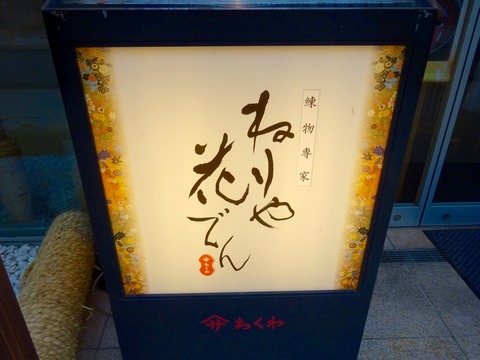 練物専家
ねりや
花でん
ちくわ